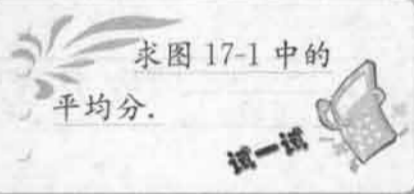 求图 17-1 中的
平均分.
试一试